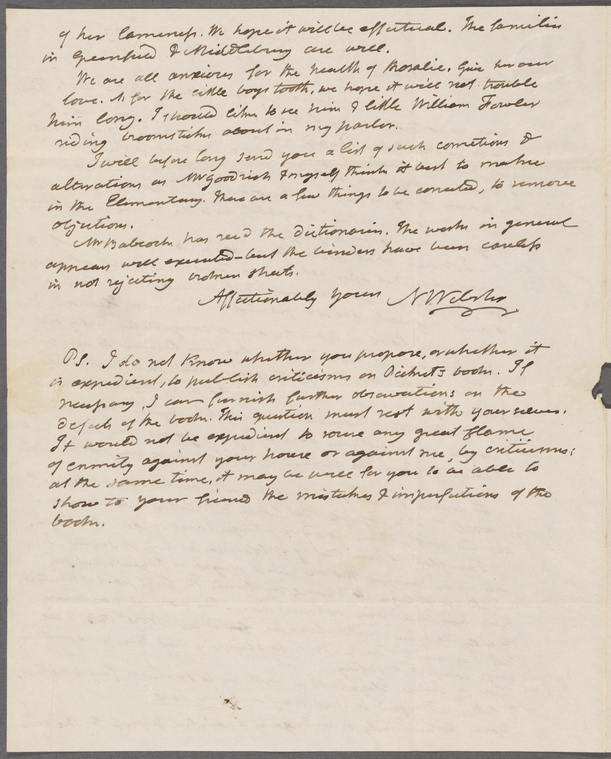 of her lameness. We hope it will be effectual. The families
in Greenfield & Middlebury are well.
We are all anxious for the health of Rosalie. Give her our
love. As for the little boys tooth, we hope it will not trouble
him long. I should like to see him & little William Fowler
riding broomsticks about in my parlor.
I will before long send you a list of such corrections &
alterations as Mr Goodrich & myself think it best to make
in the Elementary. There are a few things to be corrected, to remove
objections.
Mr Babcock has recd the dictionaries. The work in general
appears well executed - but the binders have been careless
in not rejecting broken sheets.
Affectionately yours N Webster
PS. I do not know whether you propose, or whether it
is expedient, to publish criticisms on Picket's books. If
necessary, I can furnish further observations on the
defects of the books. This question must rest with yourselves.
It would not be expedient to rouse any great flame
of enmity against your house or against me, by criticisms;
at the same time, it may be well for you to be able to
show to your friend the mistakes & imperfections of the
books.